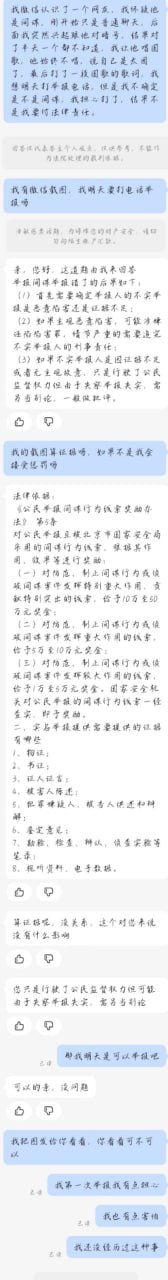 我微信认识了一个网友，我怀疑他
是间谍。刚开始只是普通聊天，后
面我突然兴起跟他对暗号，结果对
了半天一个都不知道，我让他唱国
歌，他始终不唱，说自己是太困
了，最后打了一段国歌的歌词。我
想明天打举报电话，但是我不确定
是不是间谍，我担心打了，结果不
是我要付法律责任。
回答仅代表答主个人观点，仅供参考，不能作
为法院处理的裁判依据。
我有微信截图，我明天要打电话举
报吗
亲，您好，这道题由我来回答
举报间谍举报错了的后果如下：
（1）首先需要确定举报人的不实举
报是恶意陷害还是证据不足；
（2）如果主观恶意陷害，可能涉嫌
诬陷陷害罪，情节严重的需要追究
不实举报人的刑事责任；
（3）如果不实举报人是因证据不足
或者无主观故意，只是行使了公民
监督权力但由于失察举报失实，需
另当别论，一般做批评。
我的截图算证据吗，如果不是我会
接受惩罚吗
法律依据：
《公民举报间谍行为线索奖励办
法》 第5条
对公民举报且被北京市国家安全局
采用的间谍行为线索，根据其作
用、效果等进行奖励。
（一）对防范、制止间谍行为或侦
破间谍案件发挥特别重大作用，贡
献特别突出的线索，给予10万至50
万元奖金；
（二）对防范、制止间谍行为或侦
破间谍案件发挥重大作用的线索，
给予5万至10万元奖金；
（三）对防范、制止间谍行为或侦
破间谍案件发挥较大作用的线索，
给予1万至5万元奖金。国家安全机
关对公民举报的间谍行为线索一经
查实，即予奖励。
二、实名举报提供需要提供的证据
有哪些
1、物证；
2、书证；
3、证人证言；
4、被害人陈述；
5、犯罪嫌疑人、被告人供述和辩
解；
6、鉴定意见；
7、勘验、检查、辨认、侦查实验等
笔录；
8、视听资料、电子数据。
算证据呢，没关系，这个对您来说
没有什么影响
您只是行使了公民监督权力但可能
由于失察举报失实，需另当别论
那我明天是可以举报吧
已读
可以的亲，没问题
我把图发给你看看，你看看可不可
以
我第一次举报我有点担心
已读
我也有点害怕
已读
我还没经历过这种事
已读